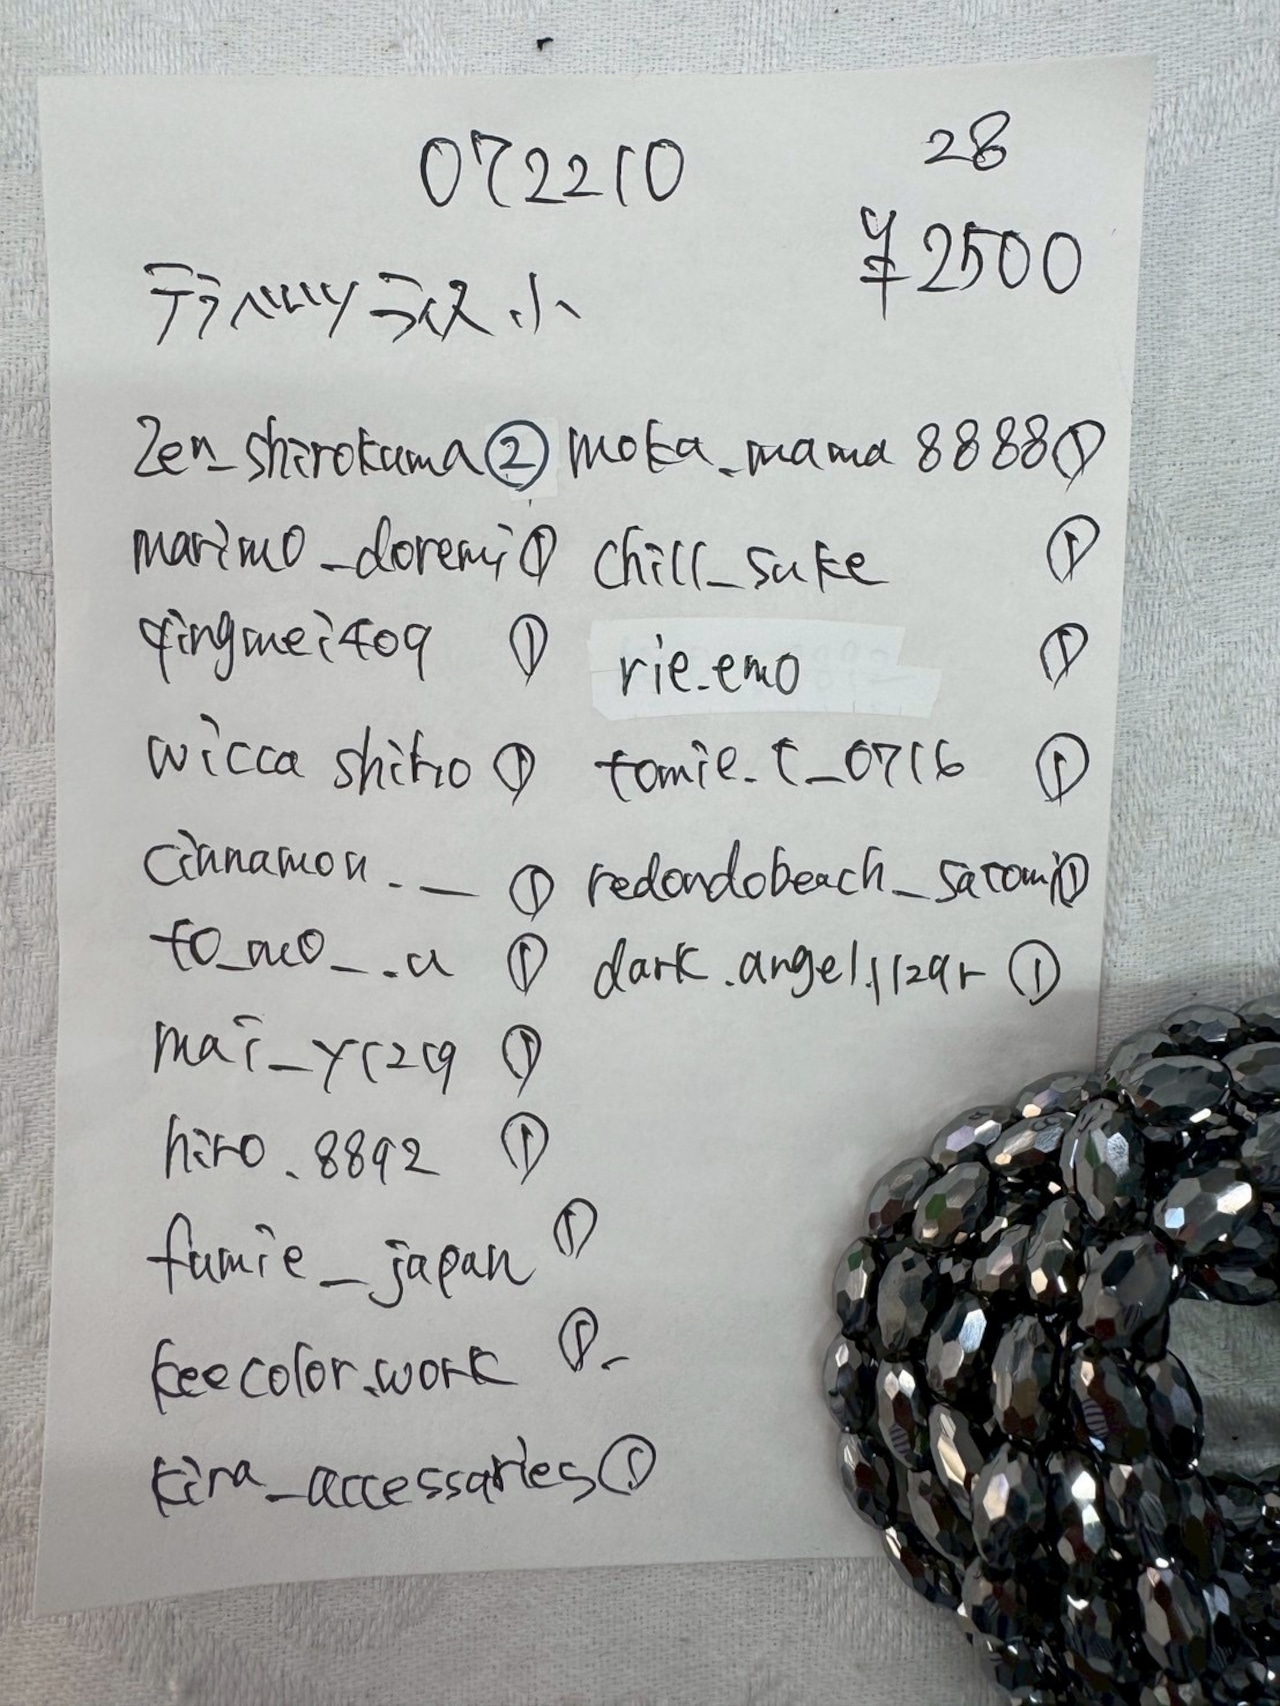 072210
28
¥2500
テラヘルツ ライス 小
zen_shirokuma ②
marimo_doremi ①
qingmei409 ①
wicca shiho ①
cinnamon._ ①
to_mo_.a ①
mai_y1219 ①
hiro.8892 ①
fumie_japan ①
keecolor.work ①
kira_accessaries ①
moka_mama 8888 ①
chill_suke ①
rie.emo ①
tomie.t_0716 ①
redondobeach_satomi ①
dark.angel.1129r ①